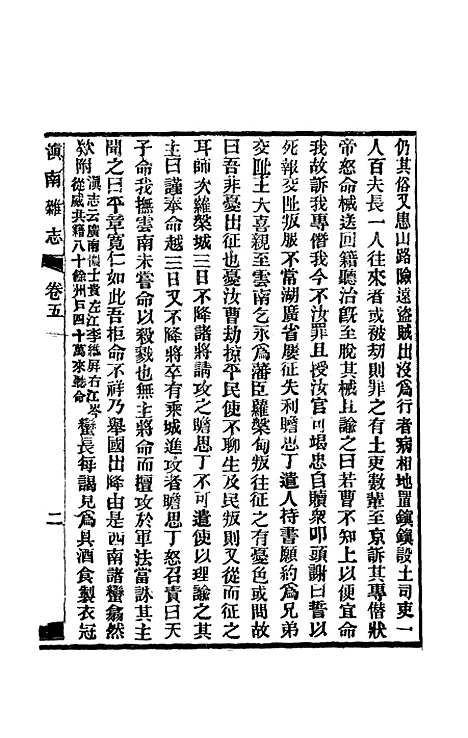 仍其俗又患山路險遠盜賊出沒爲行者病相地置鎭鎭設土司吏一
人百夫長一人往來者或被劫則罪之有土吏數輩至京訴其專僭狀
帝怒命械送回籍聽治旣至脫其械且諭之曰若曹不知上以便宜命
我故訴我專僭我今不汝罪且授汝官可竭忠自贖衆叩頭謝曰誓以
死報交阯叛服不當湖廣省屢征失利贍思丁遣人持書願約爲兄弟
交阯王大喜親至雲南乞永爲藩臣蘿槃甸叛往征之有憂色或問故
曰吾非憂出征也憂汝曹劫掠平民使不聊生及民叛則又從而征之
耳師次蘿槃城三日不降諸將請攻之贍思丁不可遣使以理諭之其
主曰謹奉命越三日又不降將卒有乘城進攻者贍思丁怒召責曰天
子命我撫雲南未嘗命以殺戮也無主將命而擅攻於軍法當誅其主
聞之曰平章寬仁如此吾拒命不祥乃舉國出降由是西南諸蠻翕然
欵附滇志云廣南儂士貴左江李維屏右江岑從威共籍八十餘州戶四十萬來聽命蠻長每謁見爲具酒食製衣冠
滇南雜志
卷五
二